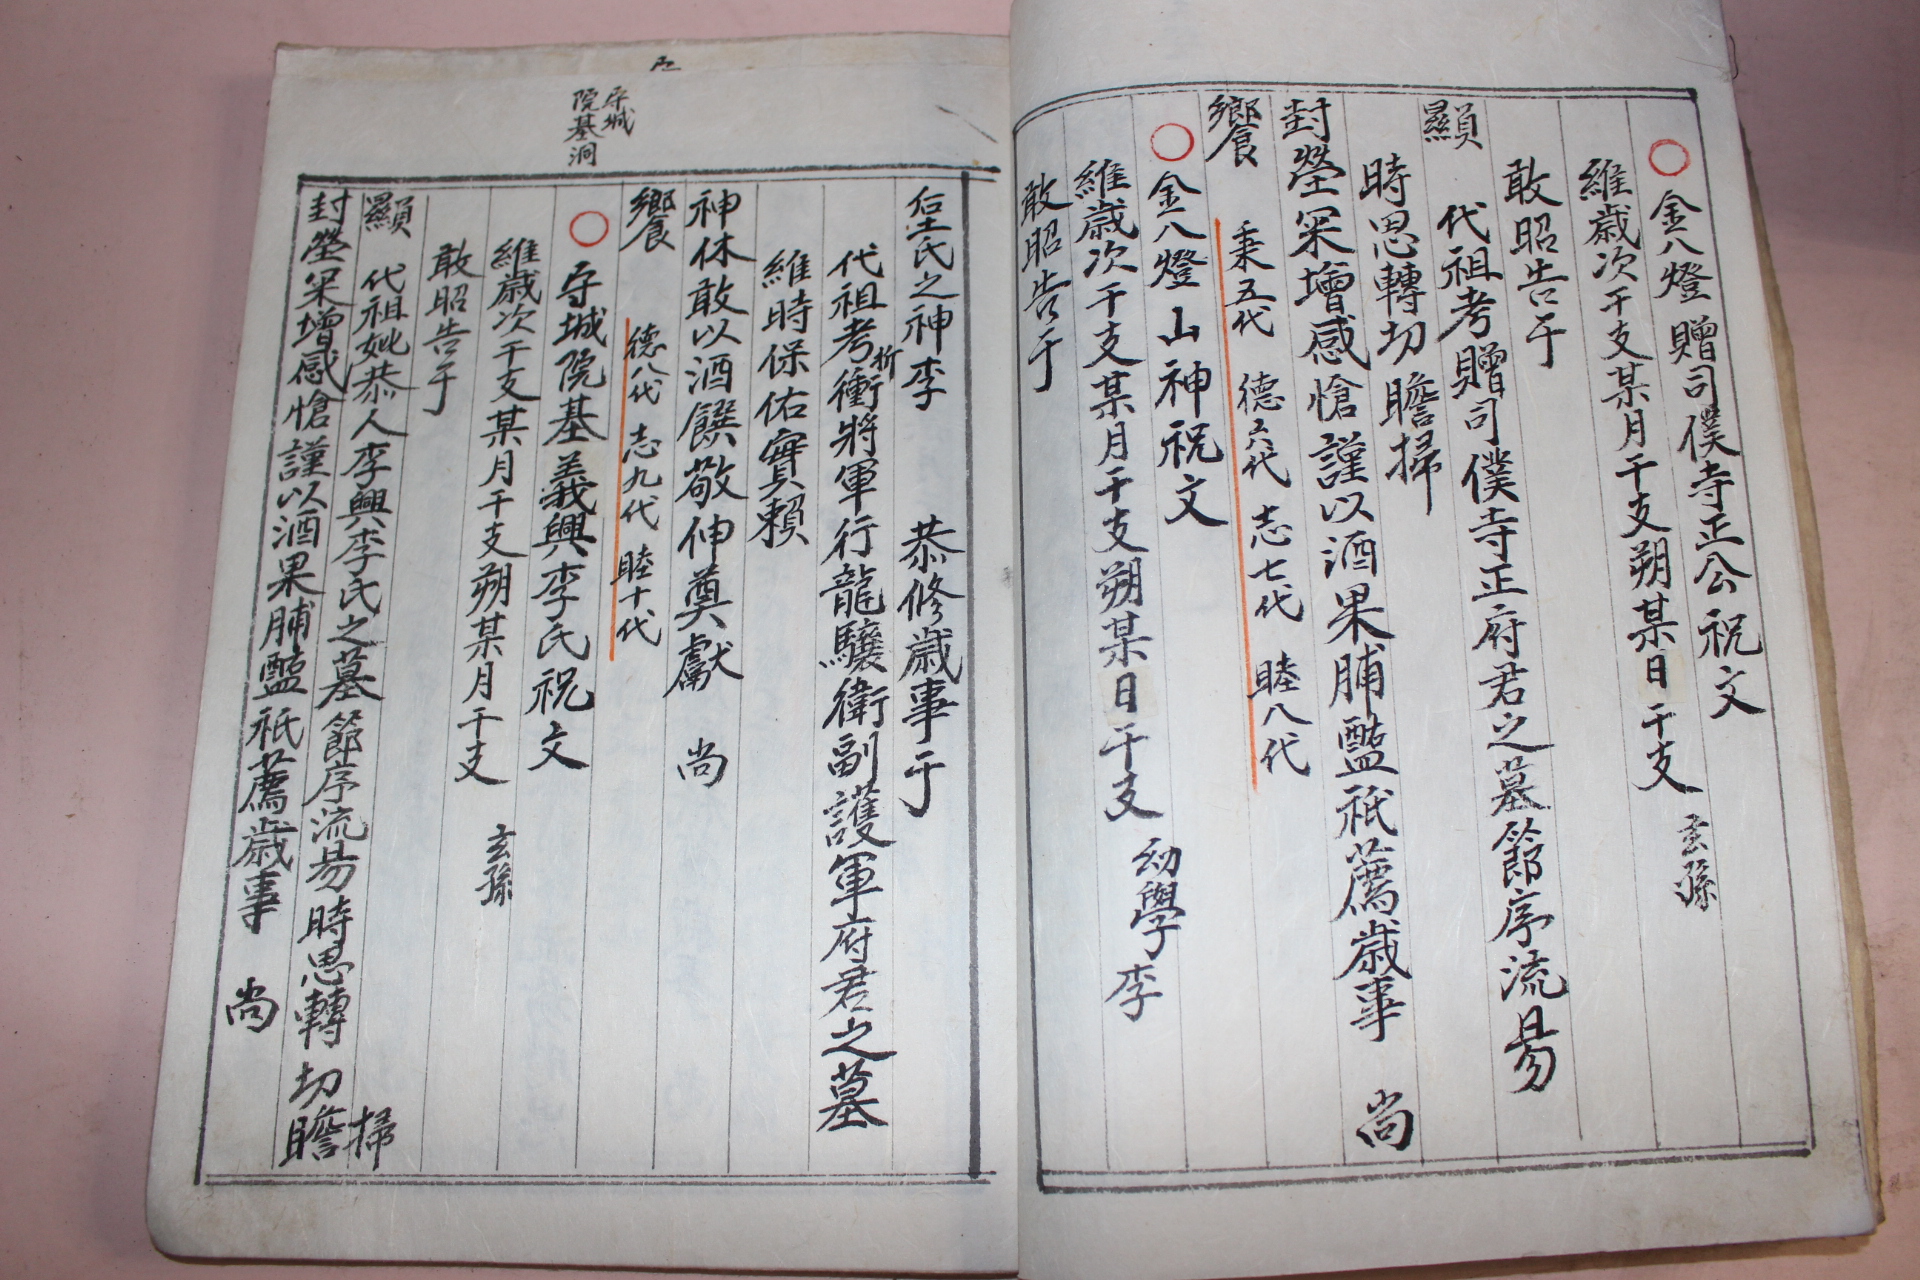 金八燈 贈司僕寺正公祝文
維歲次干支某月干支朔某日干支 玄孫
敢昭告于
顯
代祖考贈司僕寺正府君之墓節序流易
時思轉切瞻掃
封塋采增感愴謹以酒果脯醢祇薦歲事 尚
饗 秉五代 德六代 志七代 睦八代
金八燈山神祝文
維歲次干支某月干支朔某日干支 幼學李
敢昭告于
后土氏之神李 恭修歲事于
代祖考折衝將軍行龍驤衛副護軍府君之墓
維時保佑實賴
神休敢以酒饌敬伸奠獻 尚
饗 德八代 志九代 睦十代
守城院基義興李氏祝文
維歲次干支某月干支朔某月干支 玄孫
敢昭告于
顯 代祖妣恭人李興李氏之墓節序流易時思轉切瞻掃
封塋采增感愴謹以酒果脯醢祇薦歲事 尚
守城
院基洞